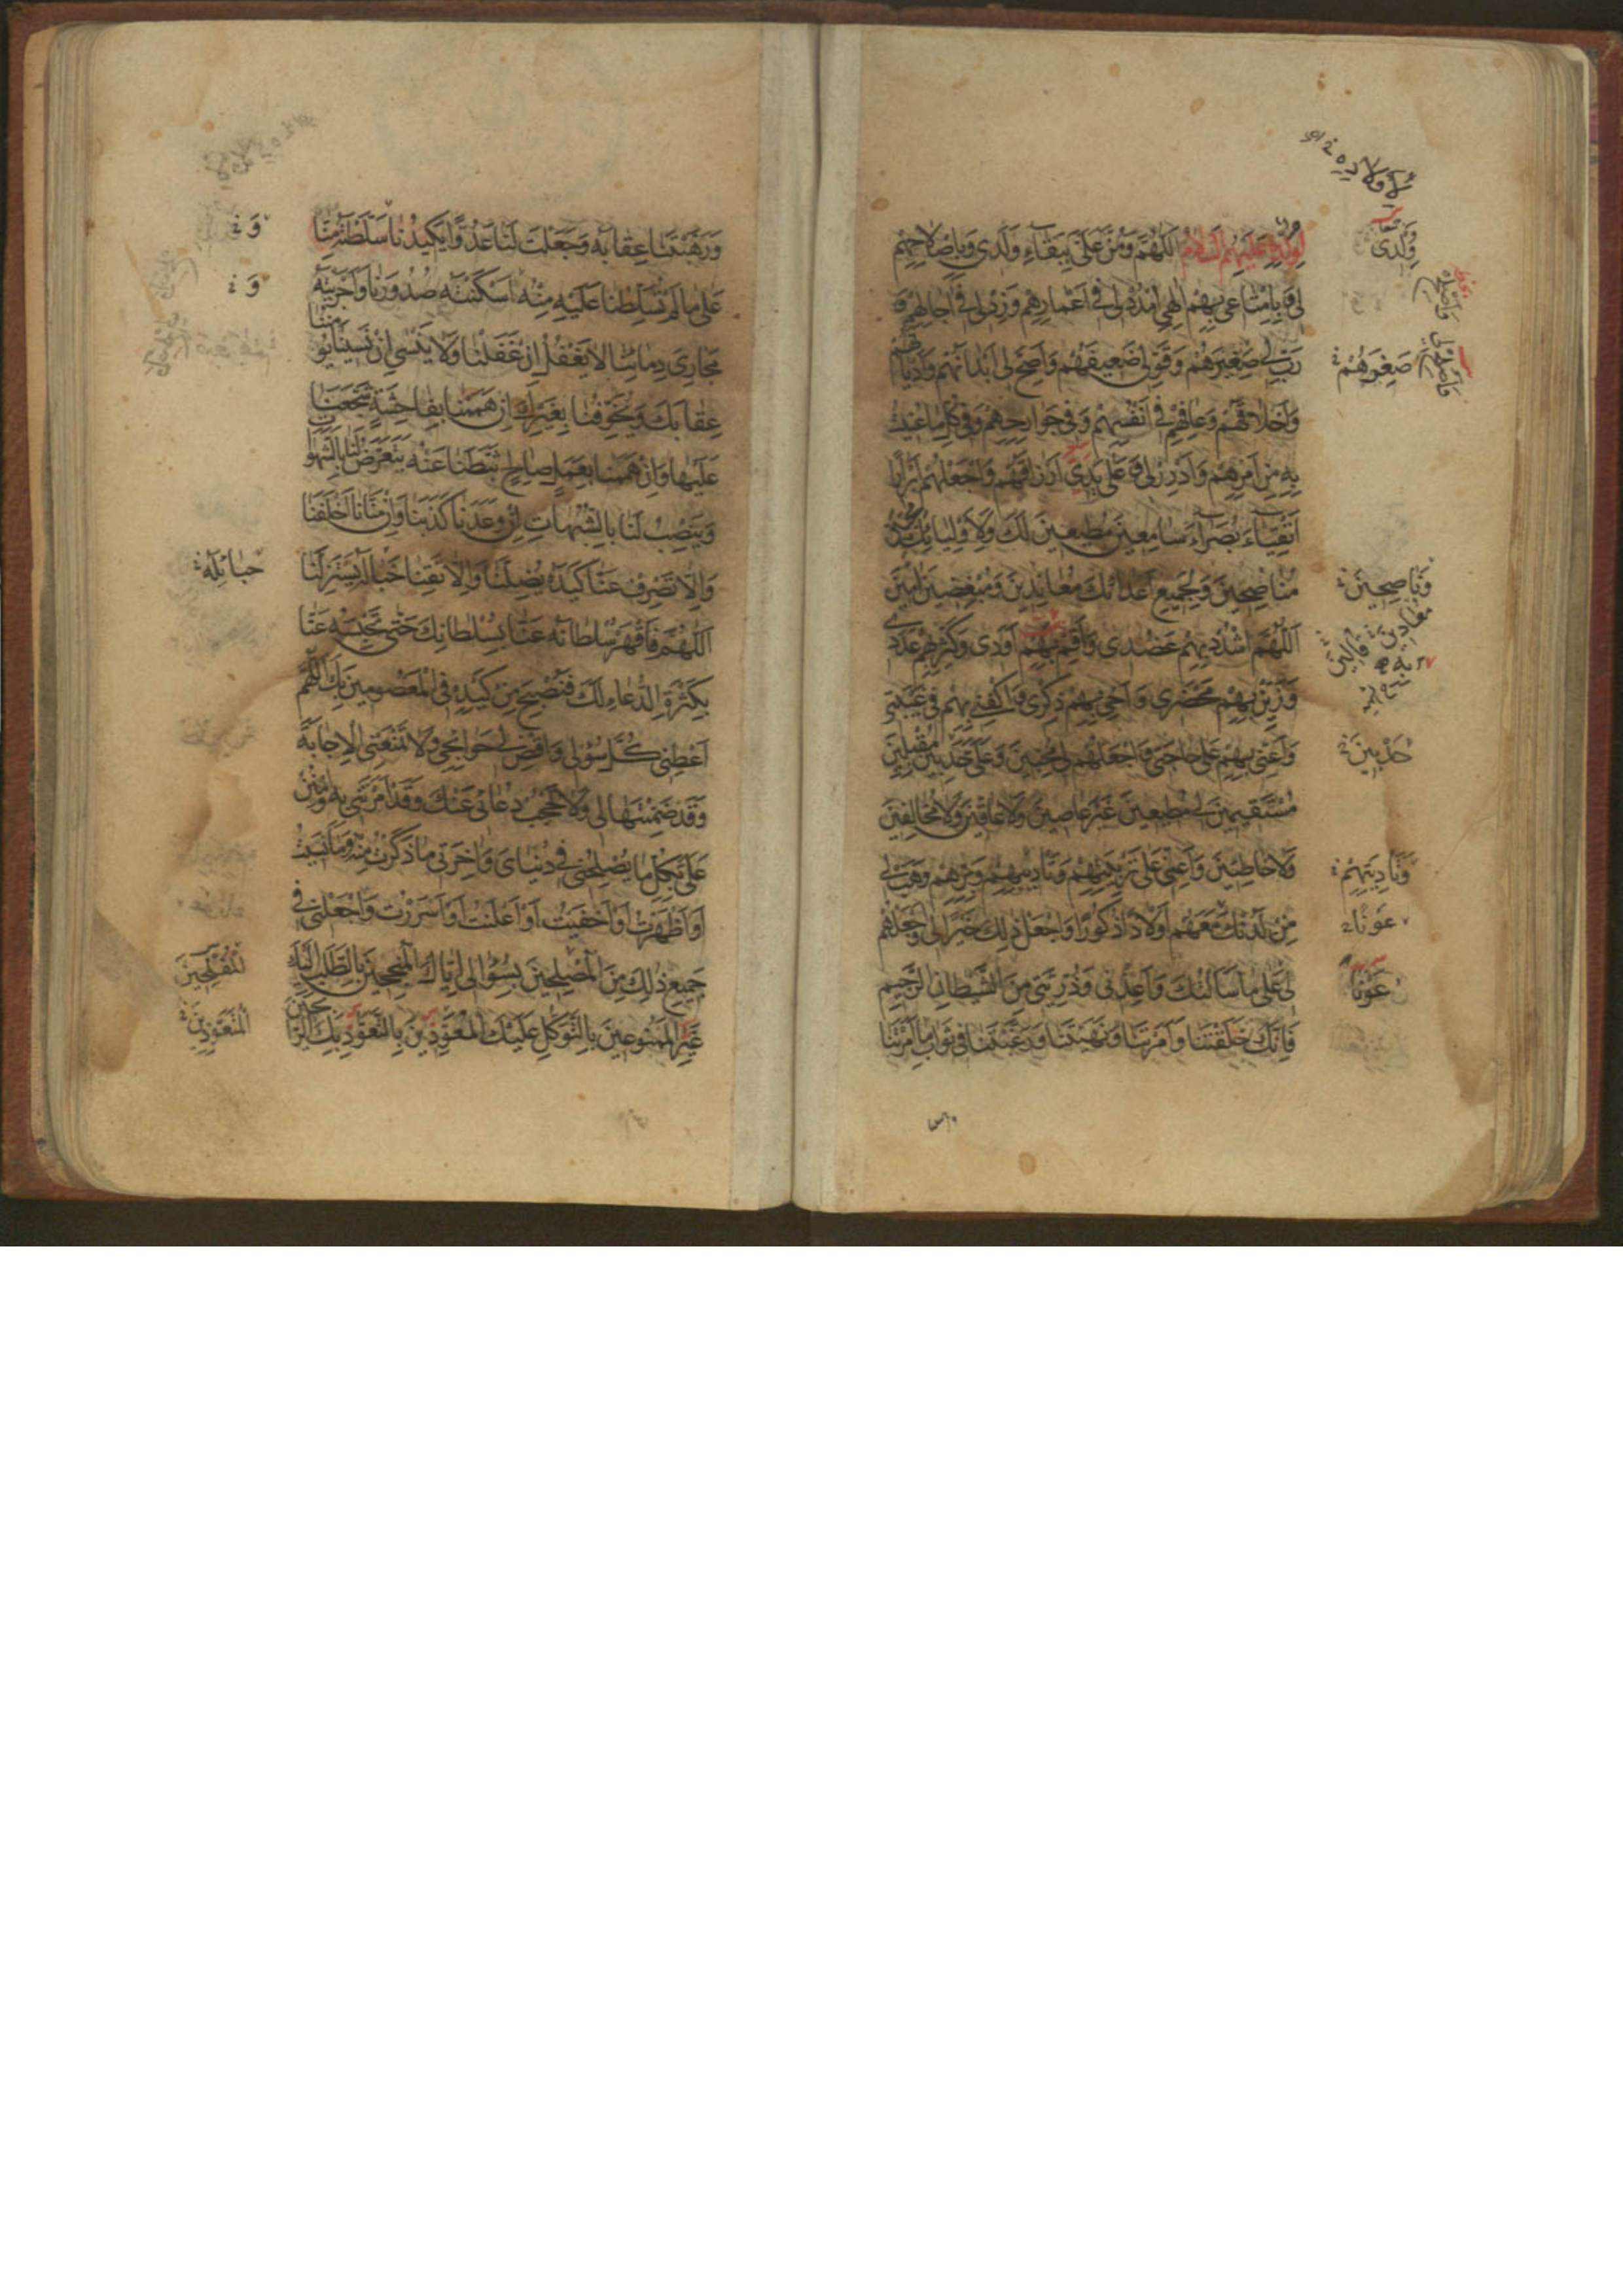 لِوُلْدِهِ عَلَيْهِمُ السَّلَامُ اَللّهُمَّ وَمُنَّ عَلَيَّ بِبَقَاءِ وَلَدِي وَبِاِصْلَاحِهِمْ
لِي وَبِاِمْتَاعِي بِهِمْ اِلهِي اُمْدُدْ لِي فِي اَعْمَارِهِمْ وَزِدْ لِي فِي اجَالِهِمْ وَ
رَبِّ لِي صَغِيرَهُمْ وَقَوِّ لِي ضَعِيفَهُمْ وَاَصِحَّ لِي اَبْدَانَهُمْ وَاَدْيَانَهُمْ
وَاَخْلَاقَهُمْ وَعَافِهِمْ فِي اَنْفُسِهِمْ وَفِي جَوَارِحِهِمْ وَفِي كُلِّ مَا عُنِيتُ
بِهِ مِنْ اَمْرِهِمْ وَاَدْرِرْ لِي وَعَلَى يَدِي اَرْزَاقَهُمْ وَاجْعَلْهُمْ اَبْرَارًا
اَتْقِيَاءَ بُصَرَاءَ سَامِعِينَ مُطِيعِينَ لَكَ وَلِاَوْلِيَائِكَ مُحِبِّينَ
مُنَاصِحِينَ وَلِجَمِيعِ اَعْدَائِكَ مُعَانِدِينَ وَمُبْغِضِينَ امِينَ
اَللّهُمَّ اشْدُدْ بِهِمْ عَضُدِي وَاَقِمْ بِهِمْ اَوَدِي وَكَثِّرْ بِهِمْ عَدَدِي
وَزَيِّنْ بِهِمْ مَحْضَرِي وَاَحْيِ بِهِمْ ذِكْرِي وَاكْفِنِي بِهِمْ فِي غَيْبَتِي
وَاَعِنِّي بِهِمْ عَلَى حَاجَتِي وَاجْعَلْهُمْ لِي مُحِبِّينَ وَعَلَيَّ حَدِبِينَ مُقْبِلِينَ
مُسْتَقِيمِينَ لِي مُطِيعِينَ غَيْرَ عَاصِينَ وَلَا عَاقِّينَ وَلَا مُخَالِفِينَ
وَلَا خَاطِئِينَ وَاَعِنِّي عَلَى تَرْبِيَتِهِمْ وَتَأْدِيبِهِمْ وَبِرِّهِمْ وَهَبْ لِي
مِنْ لَدُنْكَ مَعَهُمْ اَوْلَادًا ذُكُورًا وَاجْعَلْ ذلِكَ خَيْرًا لِي وَاجْعَلْهُمْ
لِي عَلَى مَا سَاَلْتُكَ وَاَعِذْنِي وَذُرِّيَّتِي مِنَ الشَّيْطَانِ الرَّجِيمِ
فَاِنَّكَ خَلَقْتَنَا وَاَمَرْتَنَا وَنَهَيْتَنَا وَرَغَّبْتَنَا فِي ثَوَابِ مَا اَمَرْتَنَا
وُلْدِي
صِغَرَهُمْ
وَنَاصِحِينَ
حَدِبِينَ
وَتَأْدِيبِهِمْ
عَوْنًا
عَوْنًا
وَرَهَّبْتَنَا عِقَابَهُ وَجَعَلْتَ لَنَا عَدُوًّا يَكِيدُنَا سَلَّطْتَهُ مِنَّا
عَلَى مَا لَمْ تُسَلِّطْنَا عَلَيْهِ مِنْهُ اَسْكَنْتَهُ صُدُورَنَا وَاَجْرَيْتَهُ
مَجَارِيَ دِمَائِنَا لَا يَغْفُلُ اِنْ غَفَلْنَا وَلَا يَنْسَى اِنْ نَسِينَا يُؤْمِنُنَا
عِقَابَكَ وَيُخَوِّفُنَا بِغَيْرِكَ اِنْ هَمَمْنَا بِفَاحِشَةٍ شَجَّعَنَا
عَلَيْهَا وَاِنْ هَمَمْنَا بِعَمَلٍ صَالِحٍ ثَبَّطَنَا عَنْهُ يَتَعَرَّضُ لَنَا بِالشَّهَوَاتِ
وَيَنْصِبُ لَنَا بِالشُّبُهَاتِ اِنْ وَعَدَنَا كَذَبَنَا وَاِنْ مَنَّانَا اَخْلَفَنَا
وَاِلَّا تَصْرِفْ عَنَّا كَيْدَهُ يُضِلَّنَا وَاِلَّا تَقِنَا خَبَالَهُ يَسْتَزِلَّنَا
اَللّهُمَّ فَاقْهَرْ سُلْطَانَهُ عَنَّا بِسُلْطَانِكَ حَتَّى تَحْبِسَهُ عَنَّا
بِكَثْرَةِ الدُّعَاءِ لَكَ فَنُصْبِحَ مِنْ كَيْدِهِ فِي الْمَعْصُومِينَ بِكَ اَللّهُمَّ
اَعْطِنِي كُلَّ سُؤْلِي وَاقْضِ لِي حَوَائِجِي وَلَا تَمْنَعْنِي الْاِجَابَةَ
وَقَدْ ضَمِنْتَهَا لِي وَلَا تَحْجُبْ دُعَائِي عَنْكَ وَقَدْ اَمَرْتَنِي بِهِ وَامْنُنْ
عَلَيَّ بِكُلِّ مَا يُصْلِحُنِي فِي دُنْيَايَ وَاخِرَتِي مَا ذَكَرْتُ مِنْهُ وَمَا نَسِيتُ
اَوْ اَظْهَرْتُ اَوْ اَخْفَيْتُ اَوْ اَعْلَنْتُ اَوْ اَسْرَرْتُ وَاجْعَلْنِي فِي
جَمِيعِ ذلِكَ مِنَ الْمُصْلِحِينَ بِسُؤَالِي اِيَّاكَ الْمُنْجِحِينَ بِالطَّلَبِ اِلَيْكَ
غَيْرِ الْمَمْنُوعِينَ بِالتَّوَكُّلِ عَلَيْكَ الْمُعَوَّذِينَ بِالتَّعَوُّذِ بِكَ الرَّابِحِينَ
وَ
وَ
حَبَائِلَهُ
الْمُفْلِحِينَ
الْمُتَعَوِّذِينَ